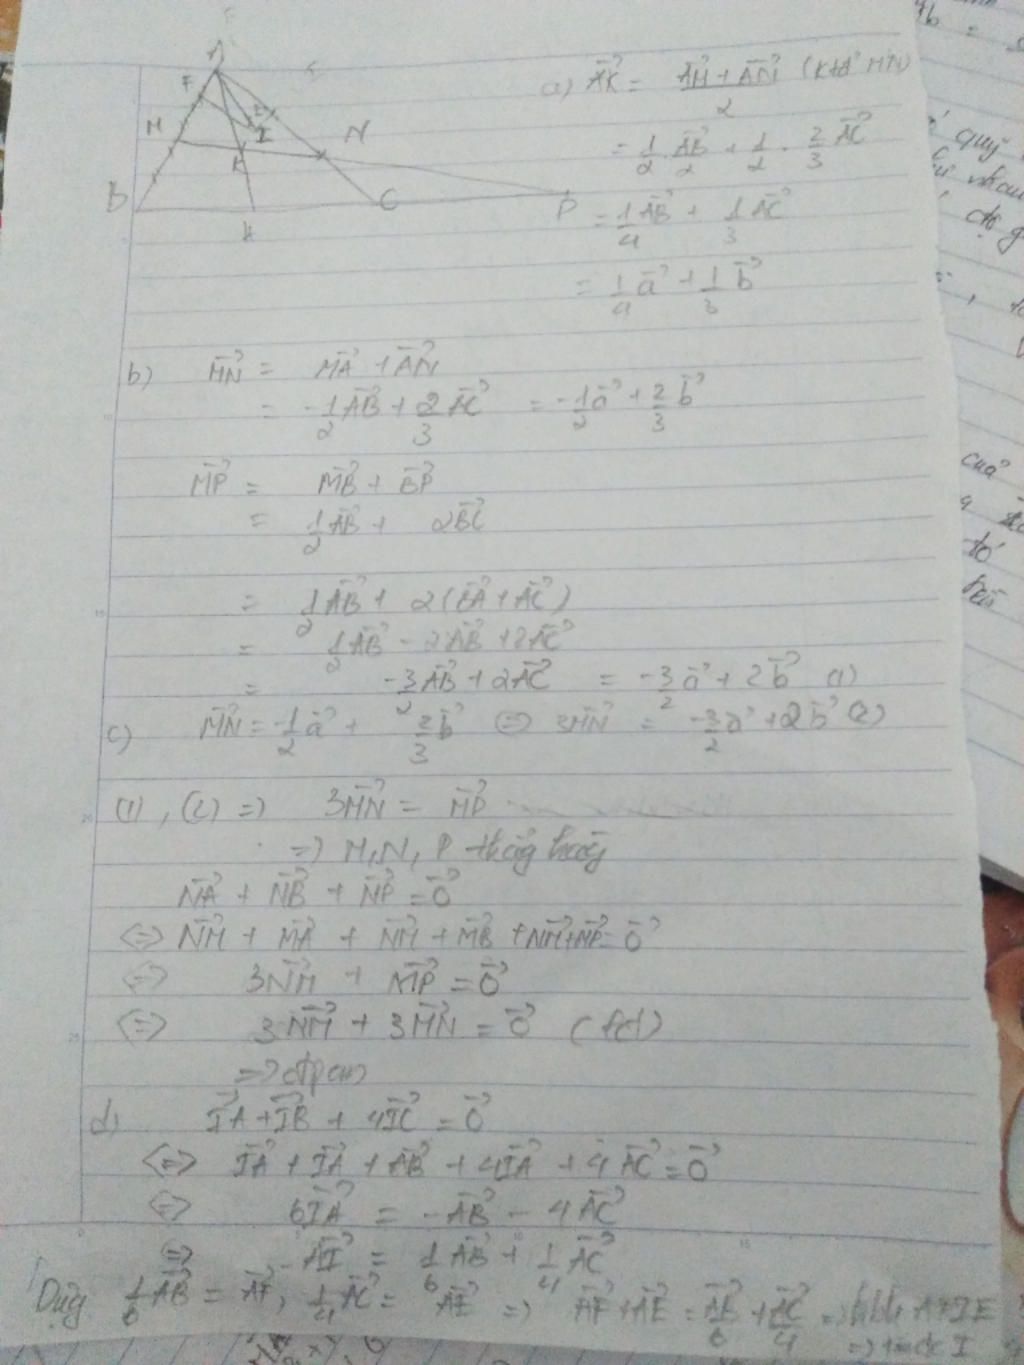 A
F
E
I
M
N
K
B
C
P
a) AK→ = (AM→ + AN→)/2 (K tđ MN)
= 1/2 . AB→/2 + 1/2 . 2/3 AC→
= 1/4 AB→ + 1/3 AC→
= 1/4 a→ + 1/3 b→
b) MN→ = MA→ + AN→
= -1/2 AB→ + 2/3 AC→ = -1/2 a→ + 2/3 b→
MP→ = MB→ + BP→
= 1/2 AB→ + 2BC→
= 1/2 AB→ + 2(BA→ + AC→)
= 1/2 AB→ - 2AB→ + 2AC→
= -3/2 AB→ + 2AC→ = -3/2 a→ + 2b→ (1)
c) MN→ = -1/2 a→ + 2/3 b→ (=) 3MN→ = -3/2 a→ + 2b→ (2)
(1), (2) =) 3MN→ = MP→
=) M, N, P thẳng hàng
NA→ + NB→ + NP→ = 0→
<=> NM→ + MA→ + NM→ + MB→ + NM→ + MP→ = 0→
<=> 3NM→ + MP→ = 0→
<=> 3NM→ + 3MN→ = 0→ (lđ)
=> đpcm
d) IA→ + IB→ + 4IC→ = 0→
<=> IA→ + IA→ + AB→ + 4IA→ + 4AC→ = 0→
<=> 6IA→ = -AB→ - 4AC→
=> AI→ = 1/6 AB→ + 1/4 AC→
Dựng 1/6 AB→ = AF→, 1/4 AC→ = AE→ => AF→ + AE→ = AB→/6 + AC→/4 => hbh AFIE
=> I
quỹ
cuả
tố